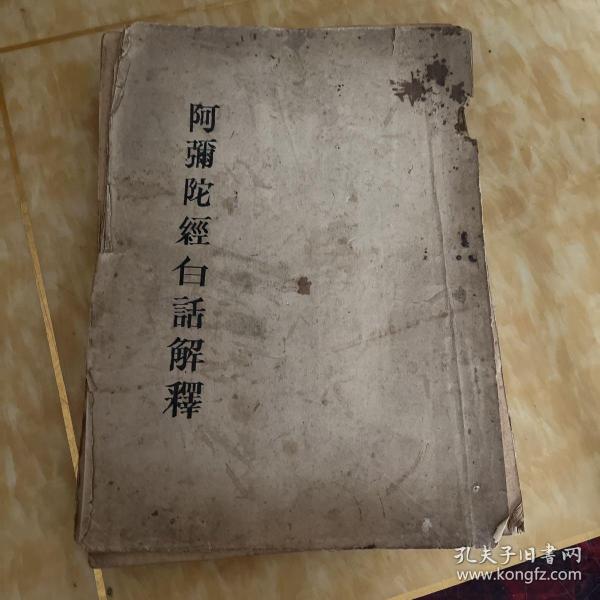 阿彌陀經白話解釋
孔夫子旧书网
www.kongfz.com